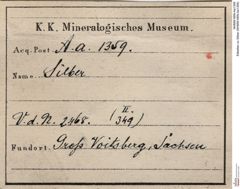 K. K. Mineralogisches Museum.
Acq. Post A. a. 1359.
Name Silber
V. d. N. 2468. (II. 349)
Fundort: Groß Voitsberg, Sachsen